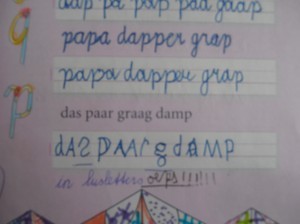 aap pa pap paa gaap
papa dapper grap
papa dapper grap
das paar graag damp
dAS PAAr g dAMP
in lusletters oeps!!!!!!